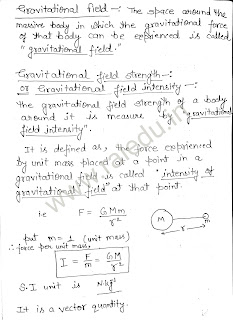 Gravitational field :- The space around the
massive body in which the gravitational force
of that body can be exprienced is called
"gravitational field."
Gravitational field strength :-
or Gravitational field intensity :-
The gravitational field strength of a body
around it is measure by "gravitational
field intensity".
It is defined as, the force exprienced
by unit mass placed at a point in a
gravitational field is called "intensity of
gravitational field" at that point.
i.e F = GMm/r²
put m = 1 (unit mass)
∴ force per unit mass,
I = F/m = GM/r²
M r
S.I unit is N.kg⁻¹
It is a vector quantity.